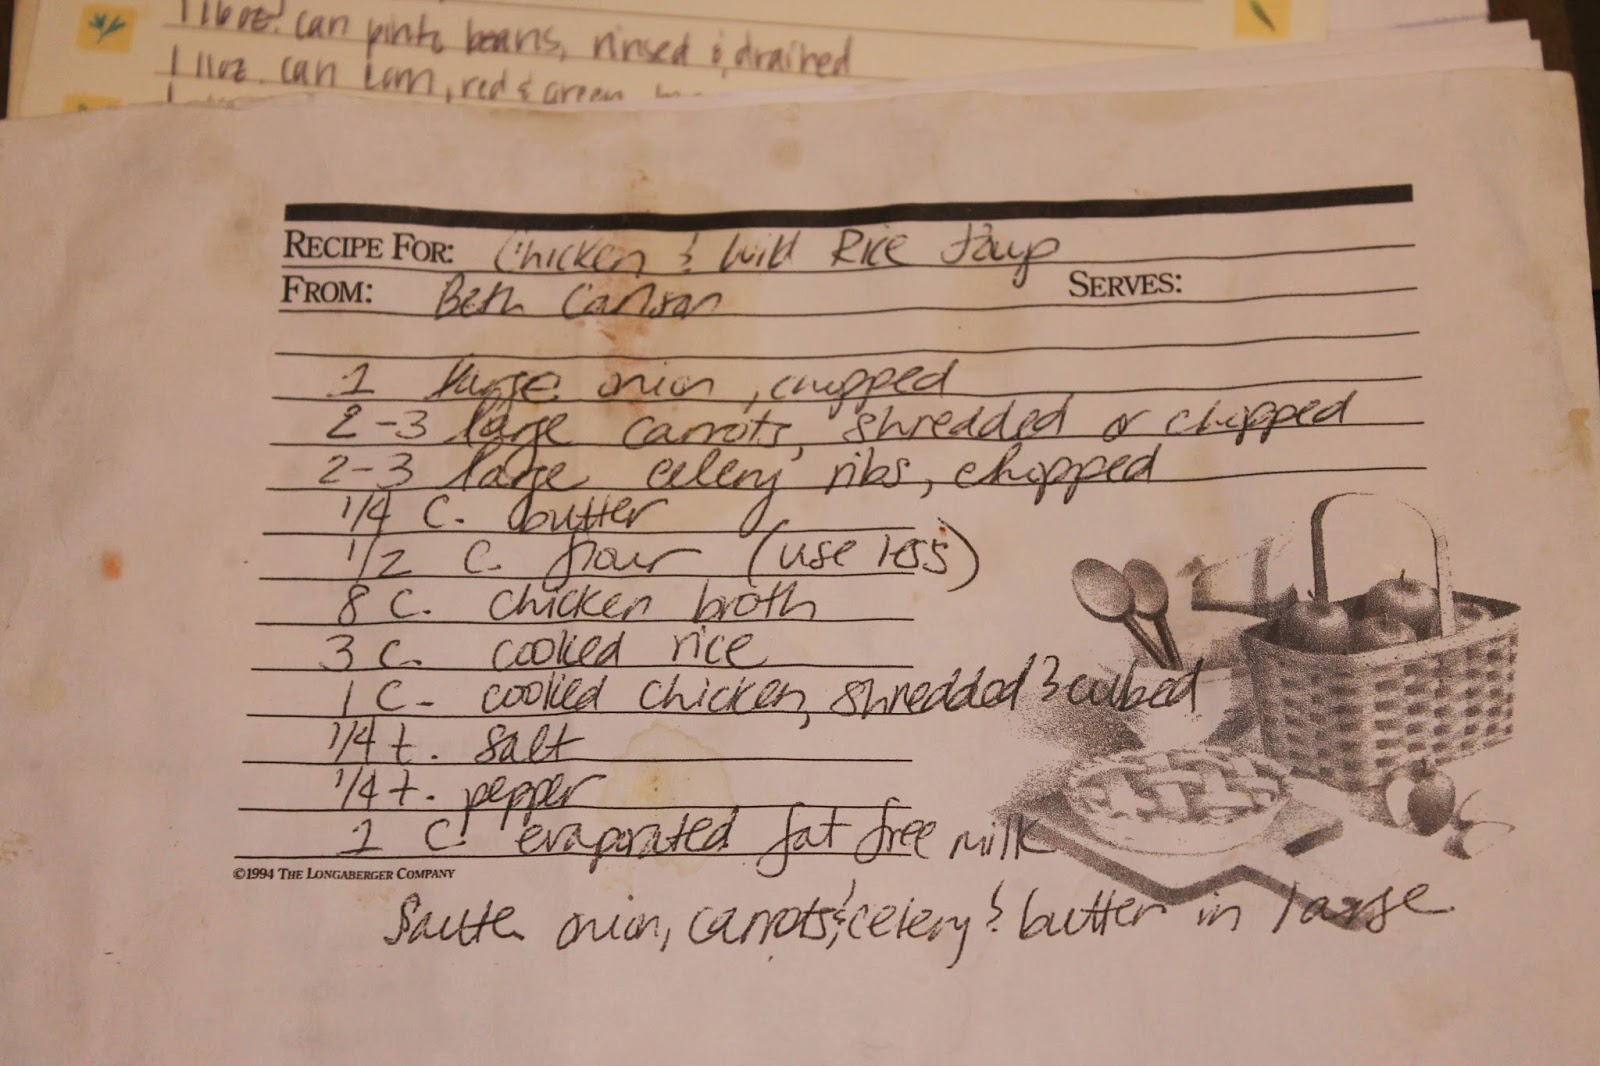 1 16 oz. can pinto beans, rinsed & drained
1 11 oz. can corn, red & green
RECIPE FOR: Chicken & Wild Rice Soup
FROM: Beth Carlson SERVES:
1 large onion, chopped
2-3 large carrots, shredded or chopped
2-3 large celery ribs, chopped
1/4 C. butter
1/2 C. flour (use less)
8 C. chicken broth
3 C. cooked rice
1 C. cooked chicken, shredded & cubed
1/4 t. salt
1/4 t. pepper
1 C. evaporated fat free milk
©1994 THE LONGABERGER COMPANY
Saute onion, carrots & celery & butter in large